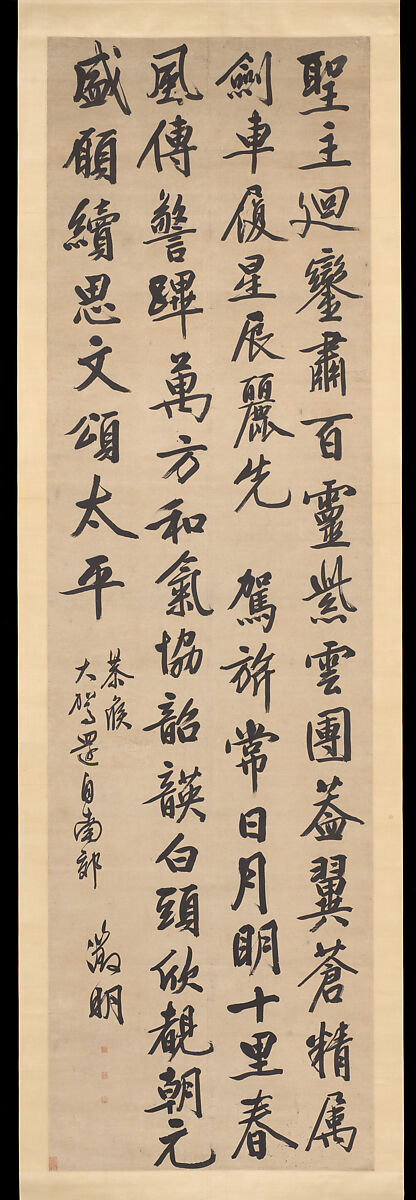 聖主迴鑾肅百靈紫雲團蓋翼蒼精属
劍車履星辰麗先 駕旂常日月明十里春
風傳警蹕萬方和氣協韶韺白頭欣覩朝元
盛願續思文頌太平
恭候
大駕還自南郊
徵明